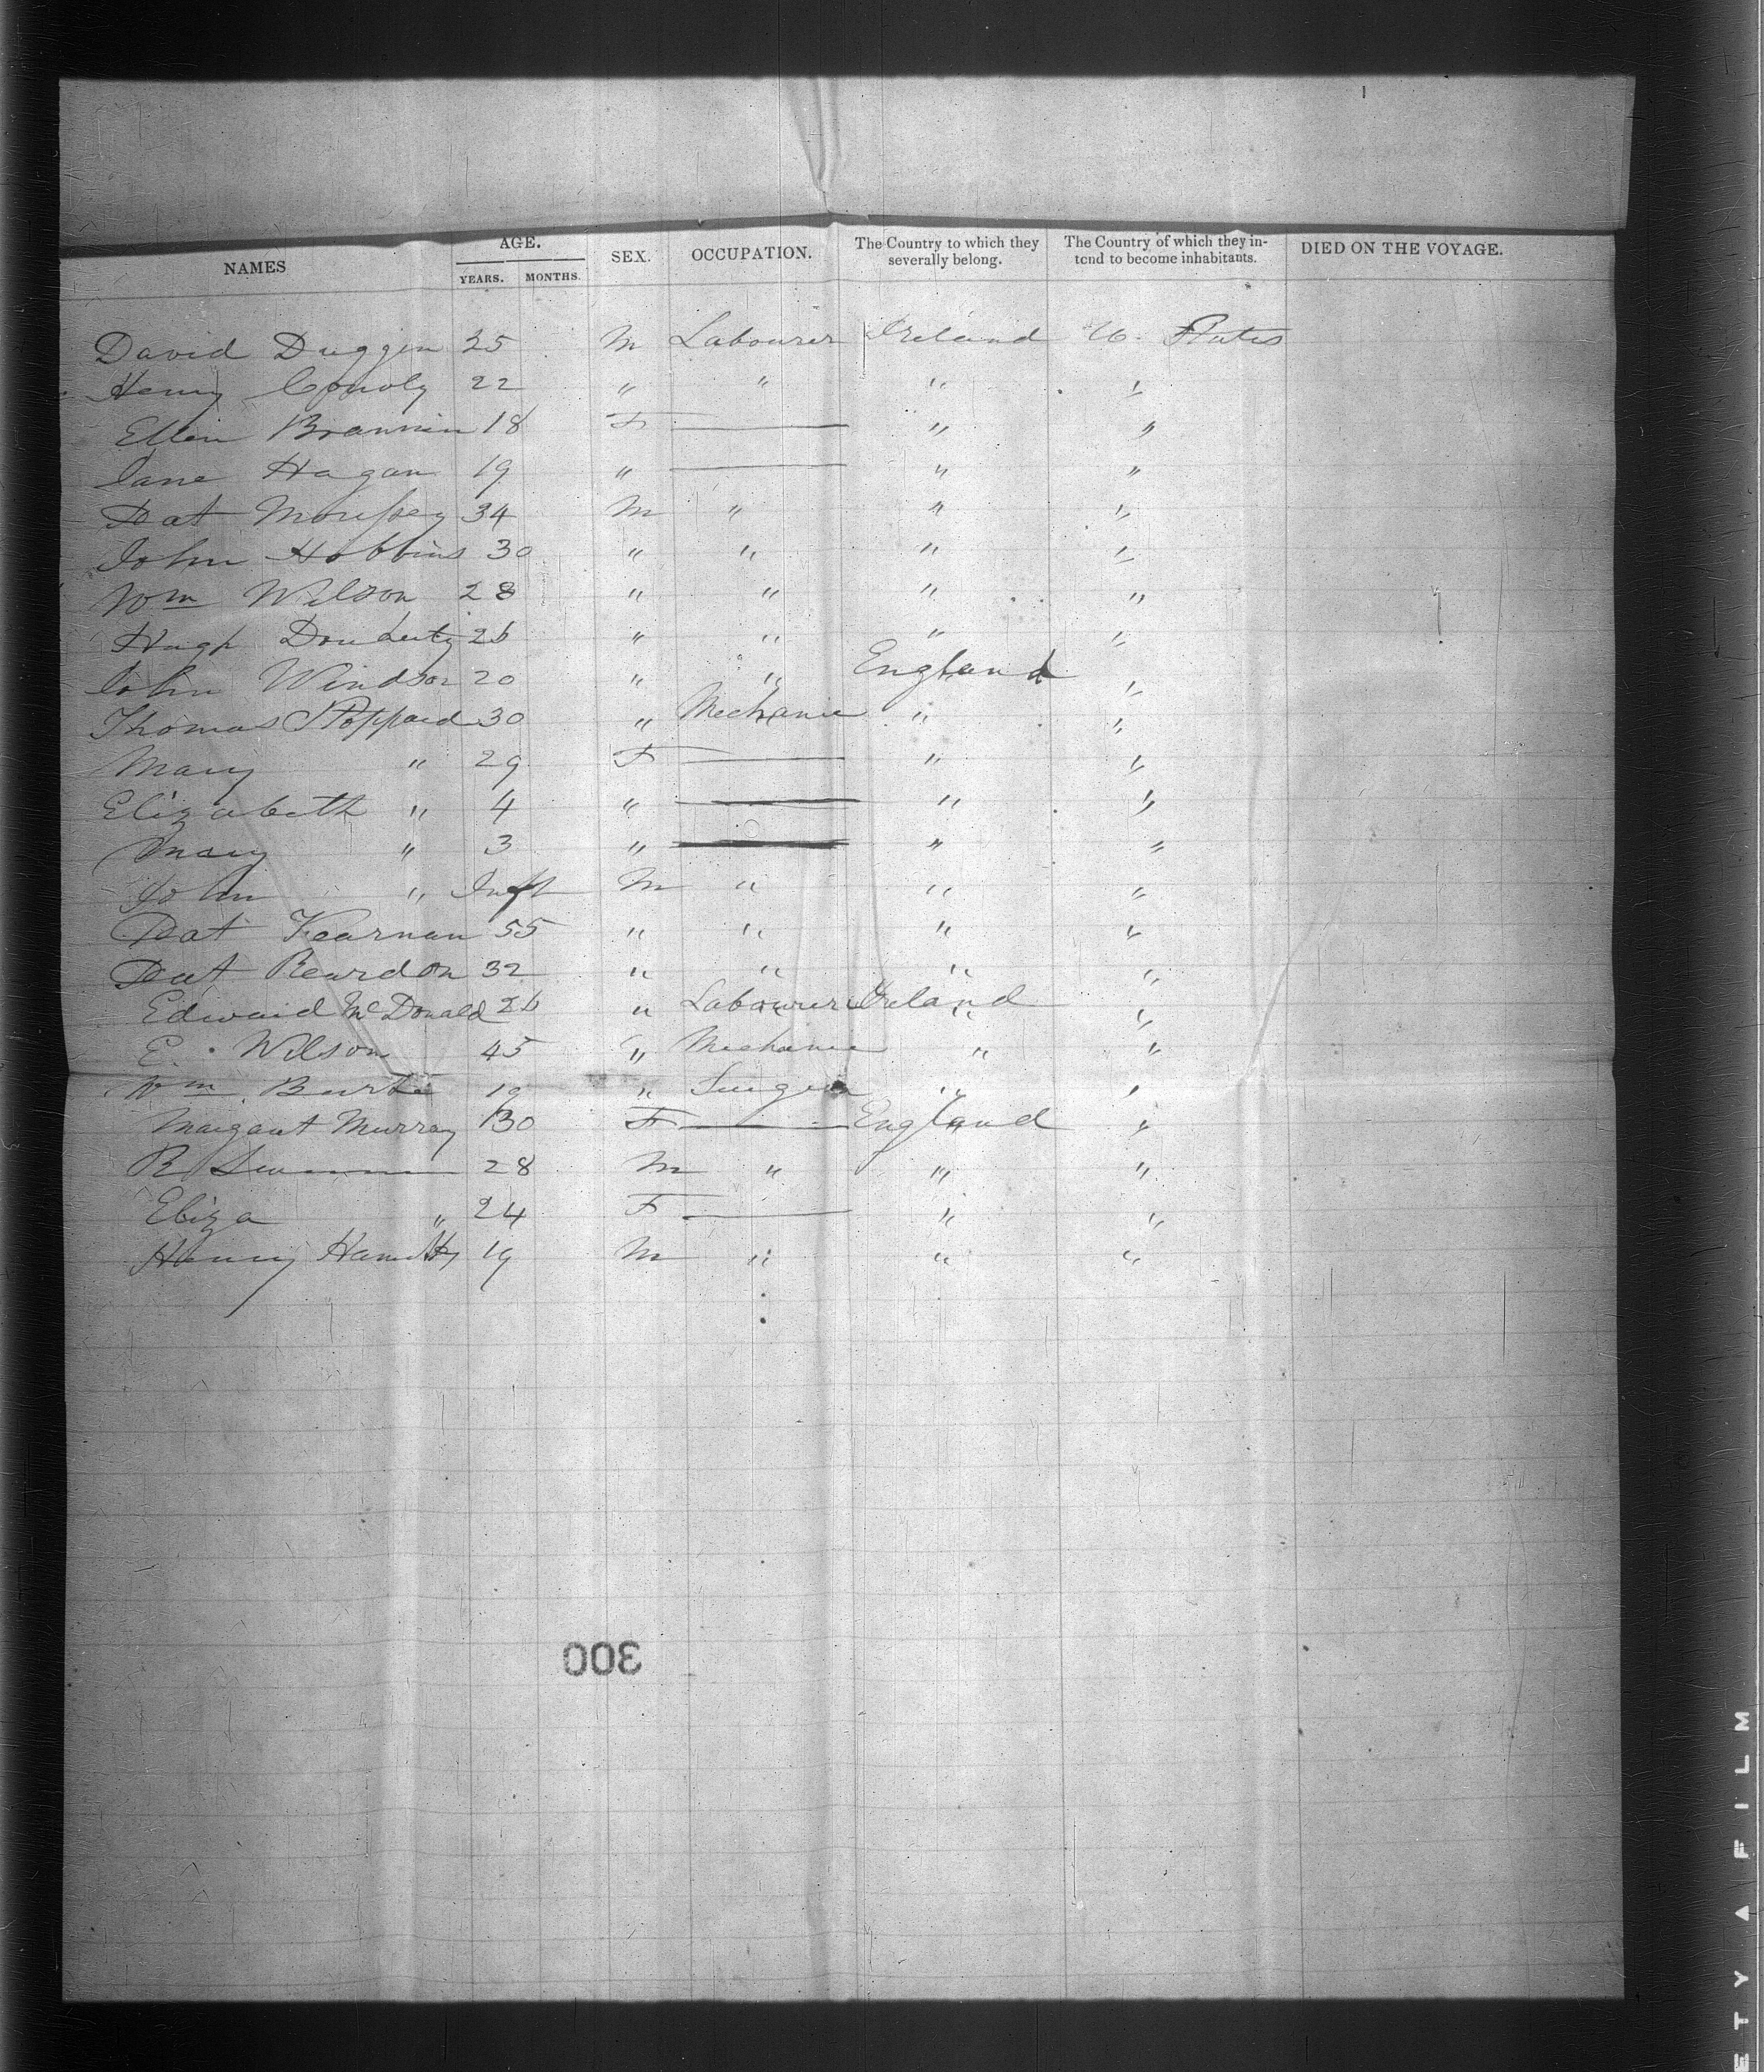 NAMES AGE. YEARS. MONTHS. SEX. OCCUPATION. The Country to which they severally belong. The Country of which they intend to become inhabitants. DIED ON THE VOYAGE.
David Duggen 25 M Labourer Ireland U. States
Henry Conoly 22 " " " "
Ellen Brannin 18 F — " "
Jane Hagan 19 " — " "
Pat Morissey 34 M " " "
John Hobbins 30 " " " "
Wm Wilson 28 " " " "
Hugh Douherty 26 " " " "
John Windsor 20 " " England "
Thomas Stoppard 30 " Mechanic " "
Mary " 29 F — " "
Elizabeth " 4 " — " "
Mary " 3 " — " "
John " Inft M " " "
Pat Kearnan 55 " " " "
Pat Reardon 32 " " " "
Edward McDonald 26 " Labourer Ireland "
E. Wilson 45 " Mechanic " "
Wm. Burke 19 " " "
Margaret Murray 30 F — England "
R 28 M " " "
Eliza " 24 F — " "
Henry 19 M " " "
300
ETY A FILM